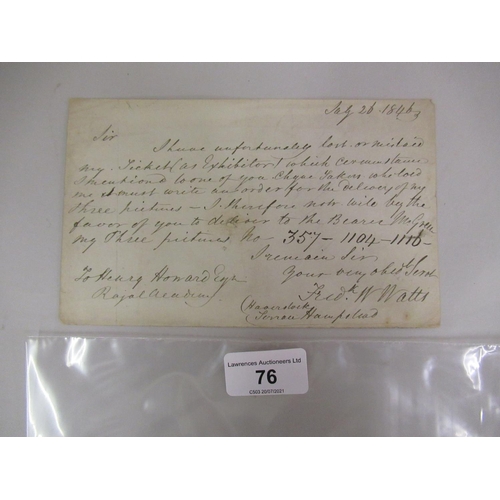 July 26 1846
Sir
I have unfortunately lost or mislaid
my Ticket (as Exhibitor) which circumstance
I mentiond to one of you Cheque Takers who told
me I must write an order for the Delivery of my
Three pictures – I therefore now will by the
favor of you to deliver to the Bearer
my Three pictures No – 357 – 1104 –
I remain Sir
Your very obedt Servt
Fredk W Watts
To Henry Howard Esqr
Royal Academy
Haverstock
Terrace Hampstead
Lawrences Auctioneers Ltd
76
E503 20/07/2021